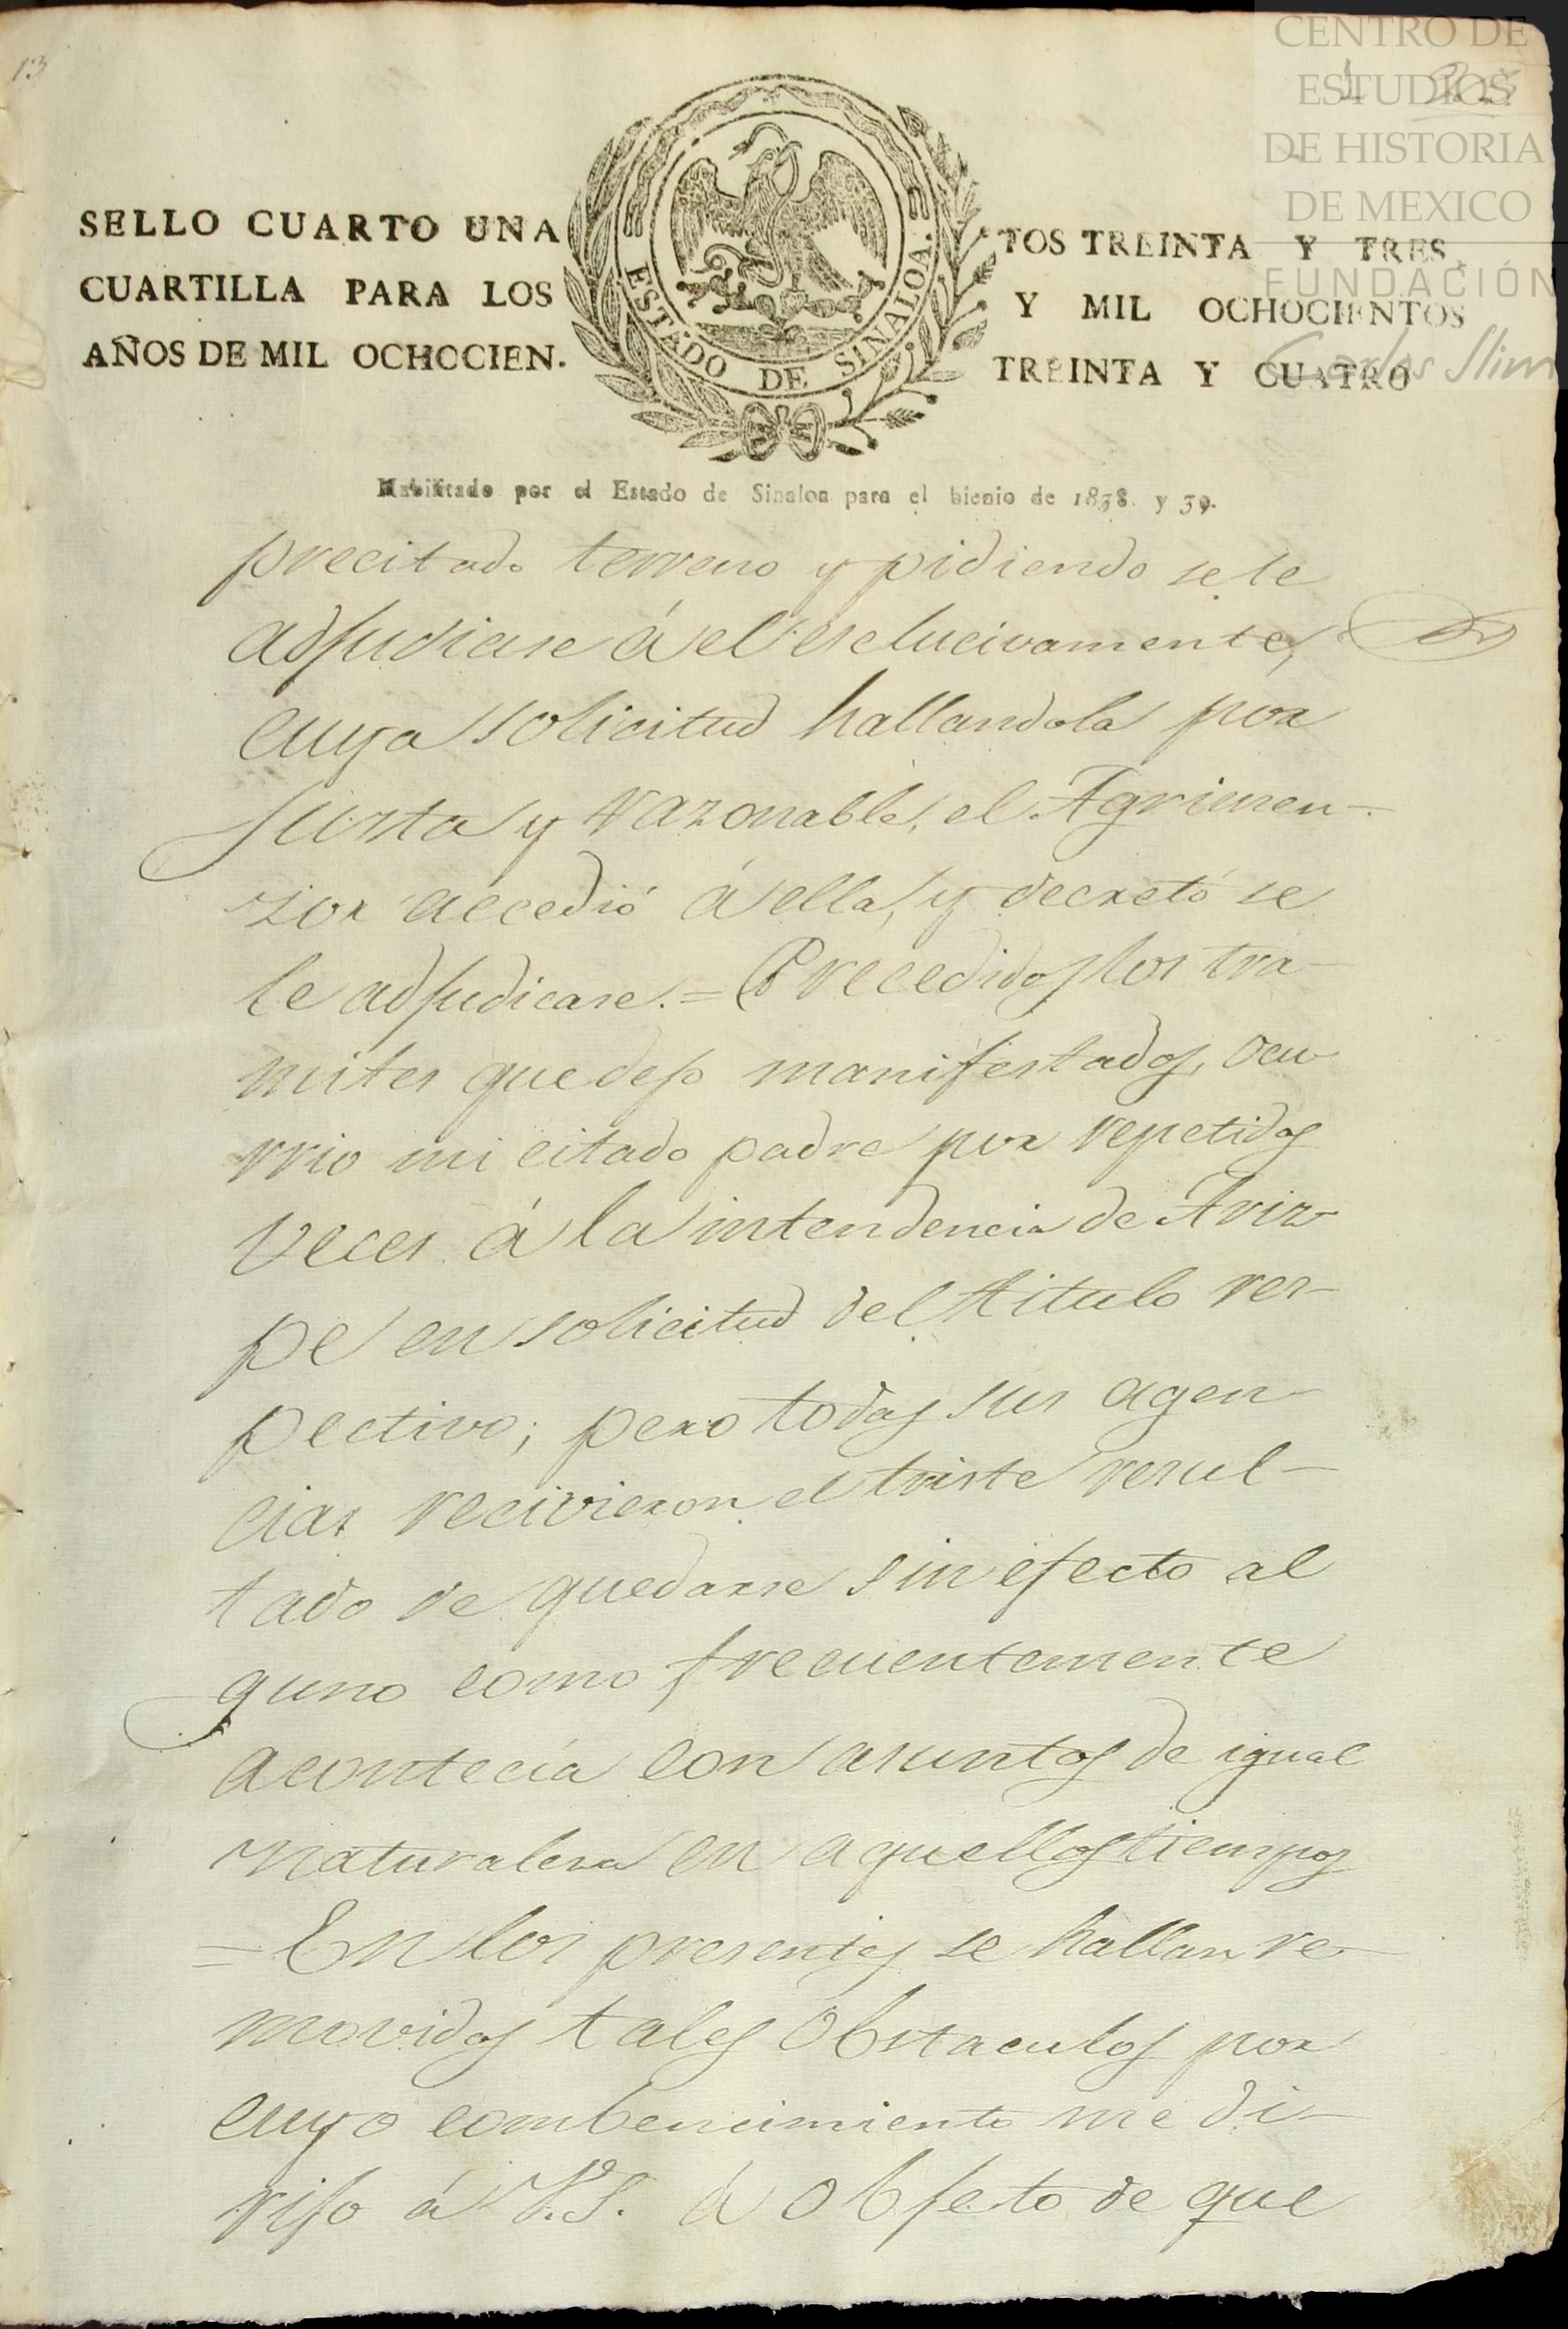 13
CENTRO DE
ESTUDIOS
DE HISTORIA
DE MEXICO
FUNDACIÓN
Carlos Slim
SELLO CUARTO UNA
CUARTILLA PARA LOS
AÑOS DE MIL OCHOCIEN.
ESTADO DE SINALOA.
TOS TREINTA Y TRES,
Y MIL OCHOCIENTOS
TREINTA Y CUATRO
Habilitado por el Estado de Sinaloa para el bienio de 1838. y 39.
precitado terreno y pidiendo se le
adjudicase á el esclucivamente,
cuya solicitud hallandola por
justa y razonable, el Agrimen-
zor accedió á ella, y decretó se
le adjudicase. = Precedidos los tra-
mites que dejo manifestados, ocu
rrio mi citado padre por repetidas
veces á la intendencia de Ariz
pe en solicitud del titulo res-
pectivo; pero todas sus agen-
cias recivieron el triste resul-
tado de quedarse sin efecto al
guno como frecuentemente
acontecía con asuntos de igual
naturalesa en aquellos tiempos
= En los presentes se hallan re-
movidos tales obstaculos por
cuyo combencimiento me di-
rijo á V.S. á objeto de que